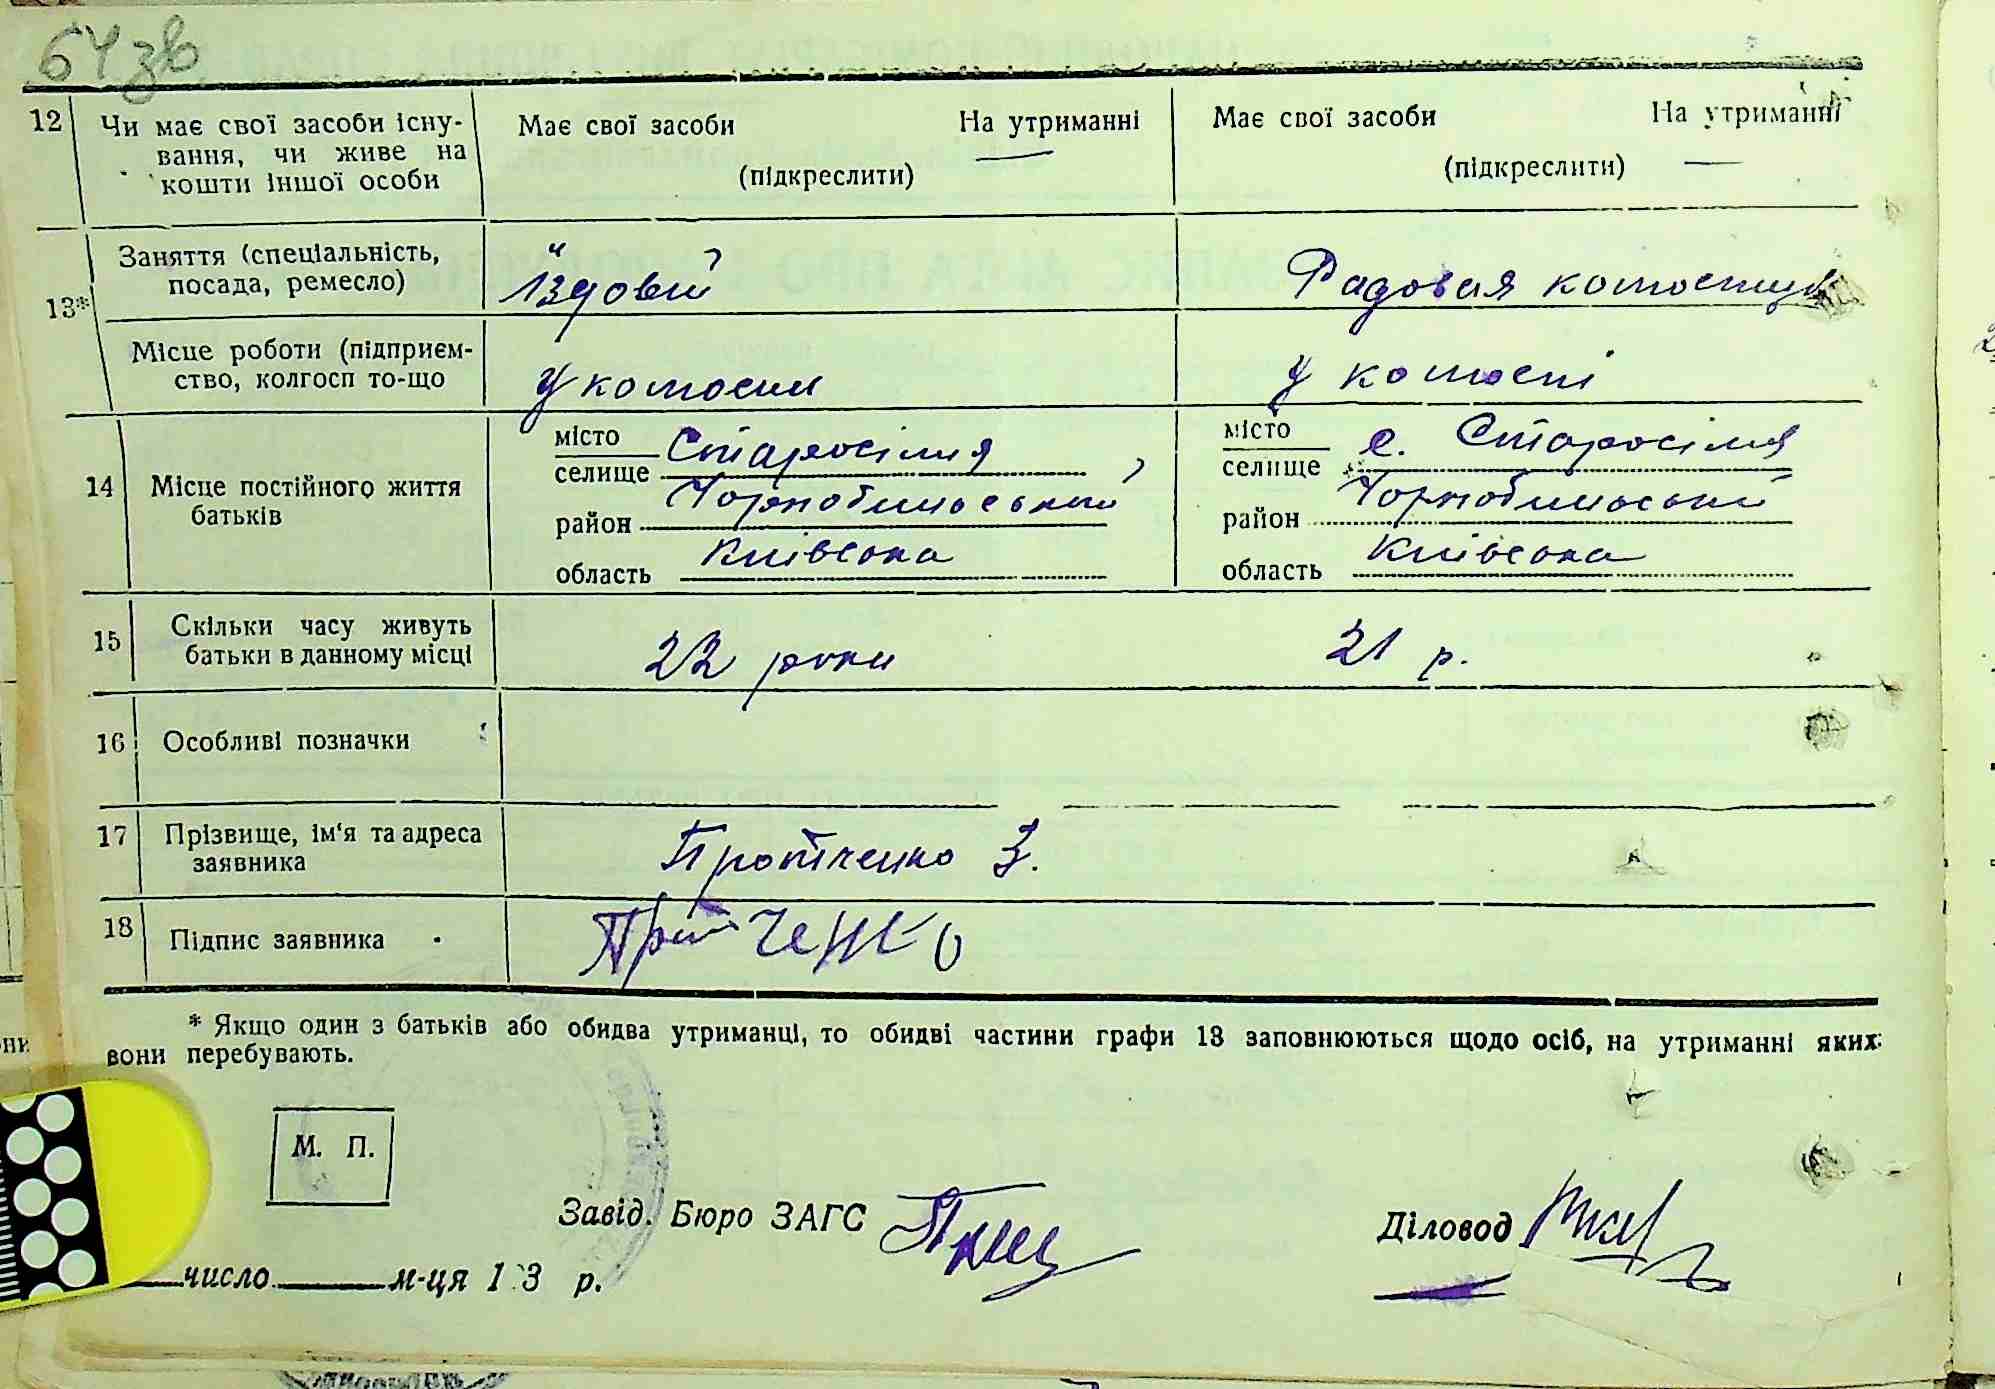 64 зв
12 Чи має свої засоби існу- Має свої засоби На утриманні Має свої засоби На утриманні
вання, чи живе на
кошти іншої особи (підкреслити) (підкреслити)
13* Заняття (спеціальність,
посада, ремесло) Їздовий Радовая
Місце роботи (підприєм-
ство, колгосп то-що У У
14 Місце постійного життя
батьків
місто
селище Старосілля
район Чорнобильський
область Київська
місто
селище с. Старосілля
район Чорнобильський
область Київська
15 Скільки часу живуть
батьки в данному місці 22 роки 21 р.
16 Особливі позначки
17 Прізвище, ім'я та адреса
заявника Протченко З.
18 Підпис заявника Протченко
* Якщо один з батьків або обидва утриманці, то обидві частини графи 13 заповнюються щодо осіб, на утриманні яких
вони перебувають.
М. П.
Завід. Бюро ЗАГС
Діловод
число м-ця 193 р.